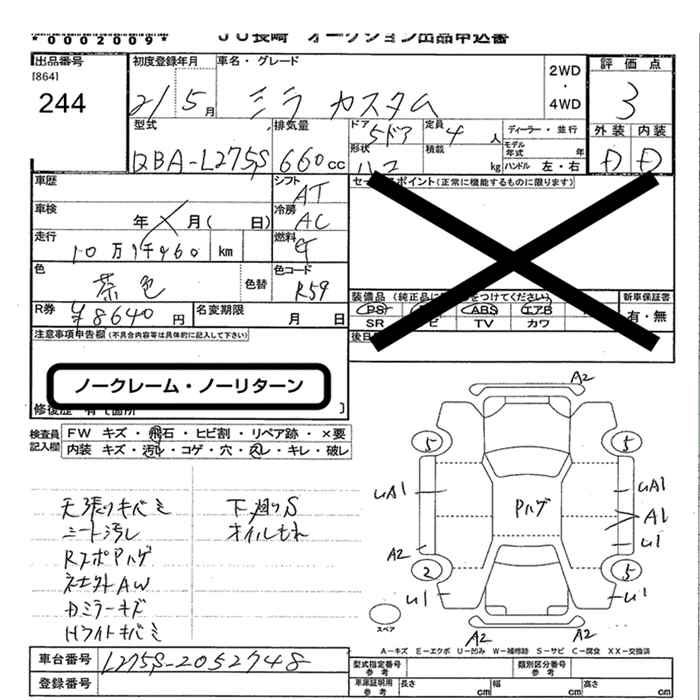 *0002009* JU長崎 オークション出品申込書
出品番号
[864]
244
初度登録年月
21 5月
車名・グレード
ミラ カスタム
2WD
・
4WD
評価点
3
外装 内装
D D
型式
DBA-L275S
排気量
660cc
ドア
5ドア
定員
4人
形状
積載 kg
ディーラー・並行
モデル年式 年
ハンドル 左・右
車歴
車検
年 月( 日)
走行
10万1千960 km
シフト
AT
冷房
AC
燃料
色
茶色
色替
色コード
R59
R券
¥8640円
名変期限
月 日
セールスポイント(正常に機能するものに限ります)
装備品
PS ABS エアB
SR TV カワ
新車保証書
有・無
注意事項申告欄(不具合内容等は具体的に記入して下さい)
ノークレーム・ノーリターン
検査員記入欄
FW キズ・飛石・ヒビ割・リペア跡・×要
内装 キズ・汚れ・コゲ・穴・スレ・キレ・破レ
天張りキバミ
シート汚レ
RスポPハゲ
社外AW
Dミラーキズ
Hライトキバミ
下廻りS
オイルもれ
A2
5 5
UA1 UA1
Pハゲ
A1
U1
A2
2 5
U1 U1
スペア
A2 A2
A-キズ E-エクボ U-凹み W-補修跡 S-サビ C-腐食 XX-交換済
車台番号
L275S-2052748
登録番号
型式指定番号 参考
類別区分番号 参考
車庫証明用 参考
長さ cm 幅 cm 高さ cm